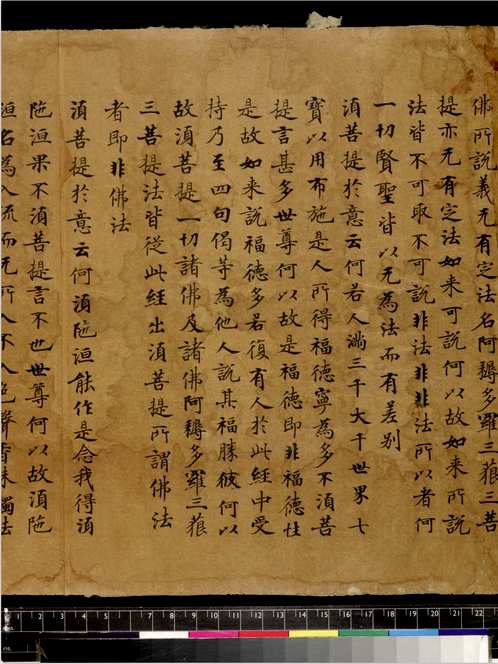 佛所說義无有定法名阿耨多羅三藐三菩
提亦无有定法如来可說何以故如来所說
法皆不可取不可說非法非非法所以者何
一切賢聖皆以无為法而有差别
湏菩提於意云何若人滿三千大千世界七
寶以用布施是人所得福德寧為多不湏菩
提言甚多世尊何以故是福德即非福德性
是故如来說福德多若復有人於此經中受
持乃至四句偈等為他人說其福勝彼何以
故湏菩提一切諸佛及諸佛阿耨多羅三藐
三菩提法皆從此經出湏菩提所謂佛法
者即非佛法
湏菩提於意云何湏陁洹能作是念我得湏
陁洹果不湏菩提言不也世尊何以故湏陁
洹名為入流而无所入不入色聲香味觸法
1 2 3 4 5 6 7 8 9 10 11 12 13 14 15 16 17 18 19 20 21 22